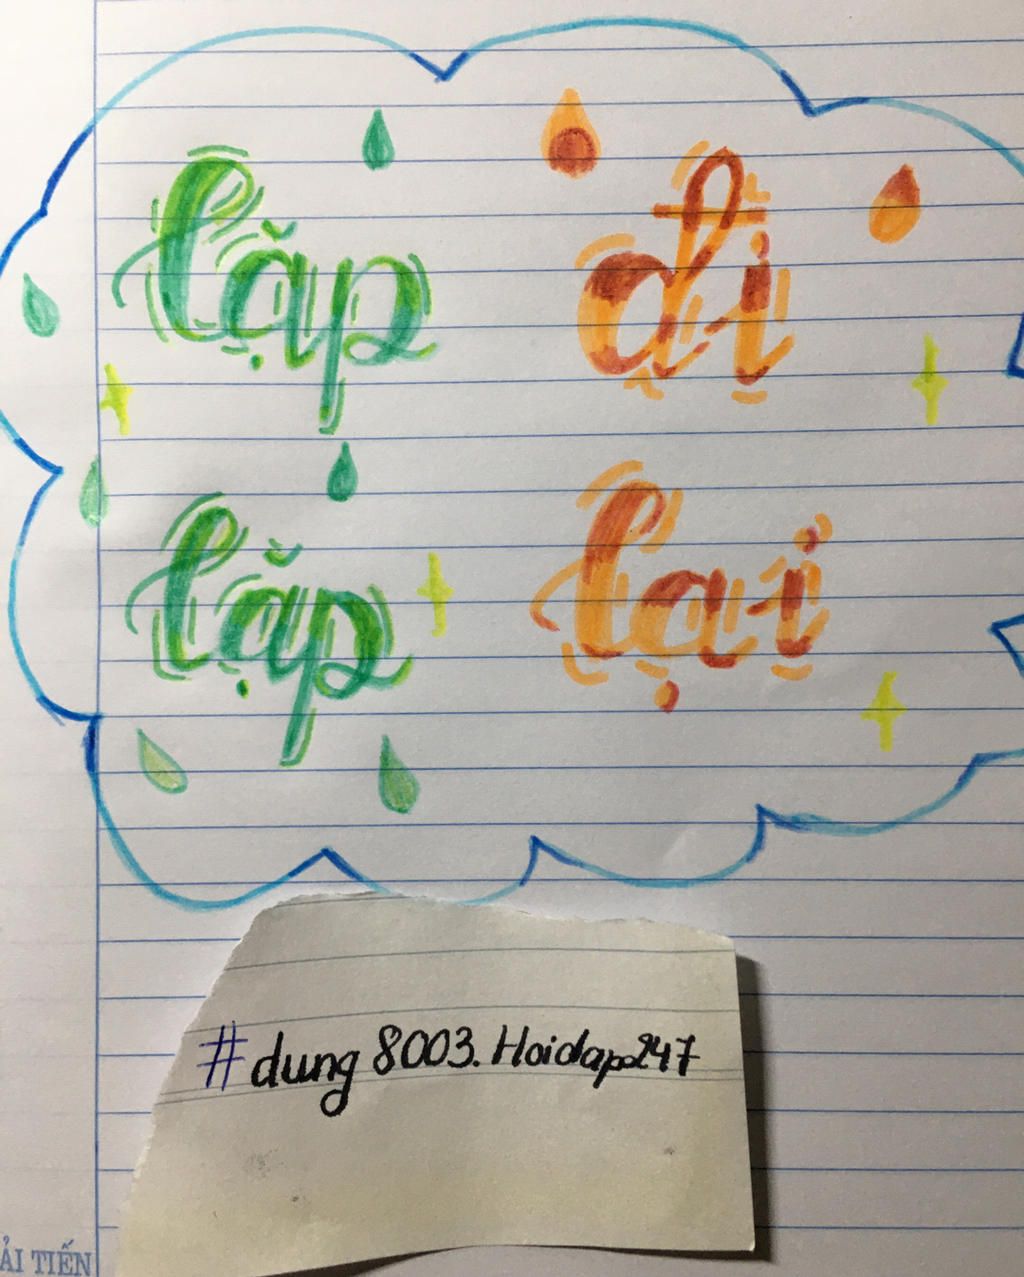 lặp đi
lặp lại
#dung8003.Hoidap247
ẢI TIẾN